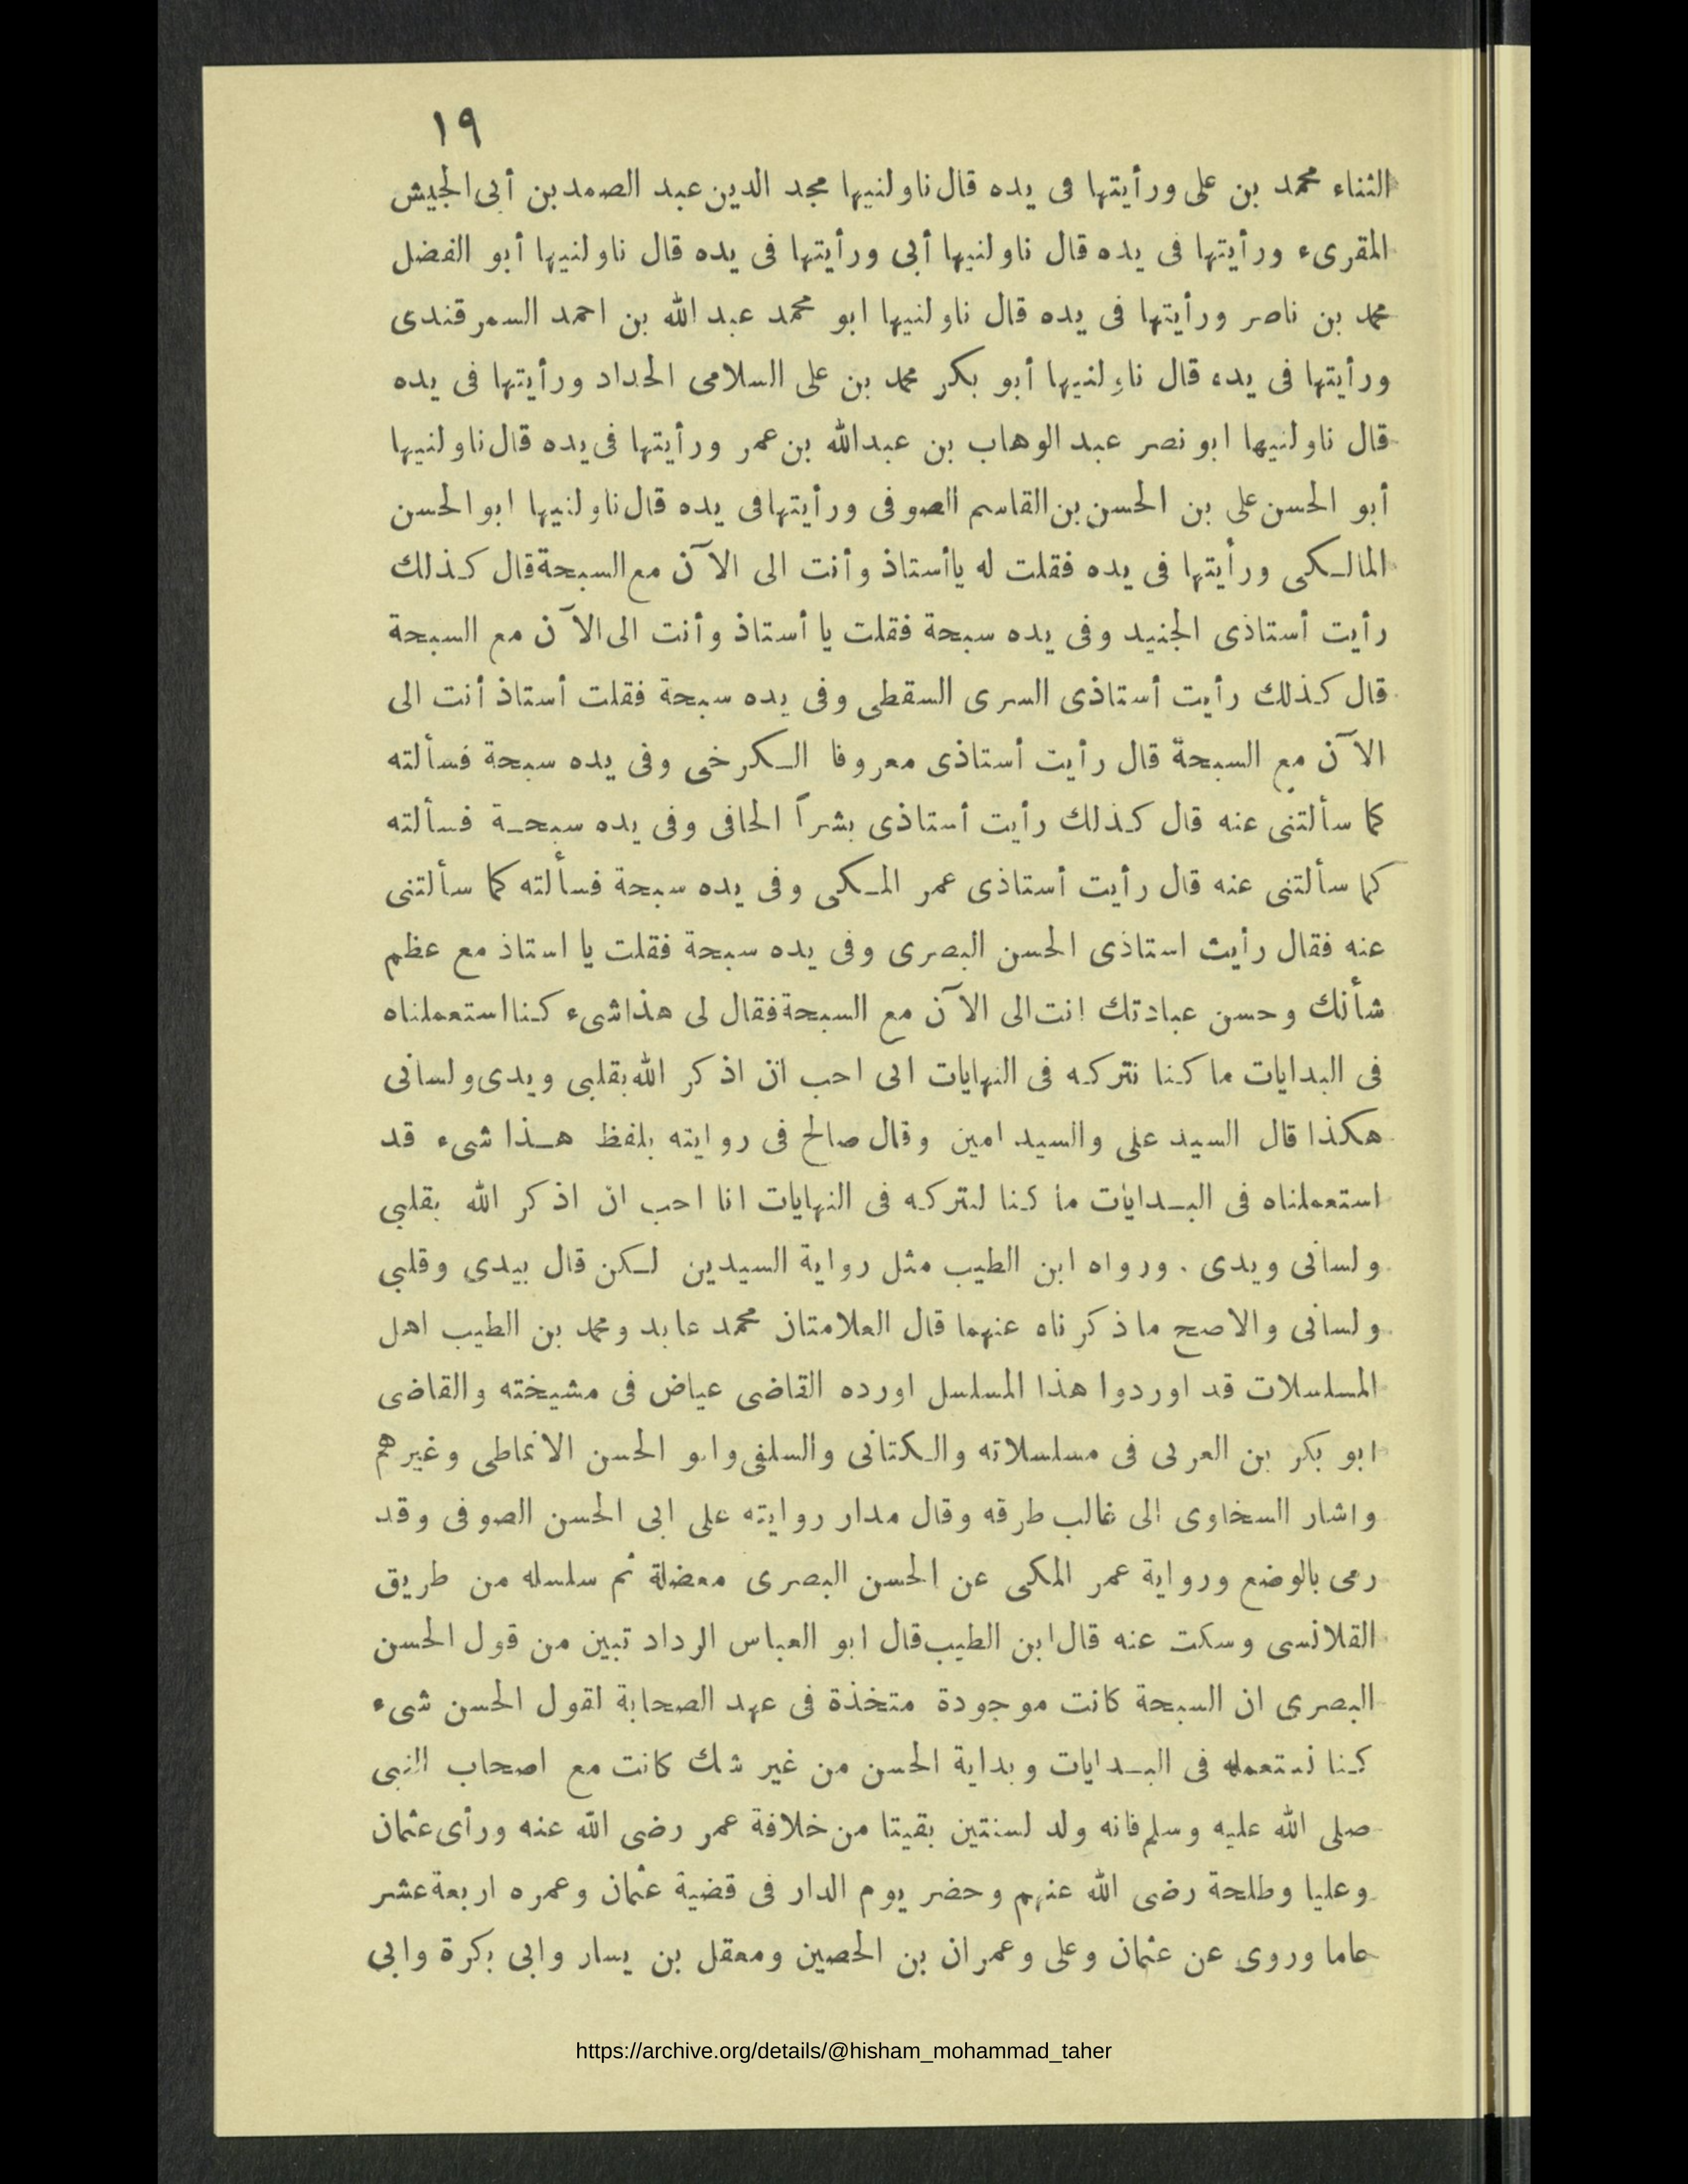 ١٩
الثناء محمد بن على ورأيتها فى يده قال ناولنيها مجد الدين عبد الصمد بن أبى الجيش
المقرىء ورأيتها فى يده قال ناولنيها أبى ورأيتها فى يده قال ناولنيها أبو الفضل
محمد بن ناصر ورأيتها فى يده قال ناولنيها ابو محمد عبد الله بن احمد السمرقندى
ورأيتها فى يده قال ناولنيها أبو بكر محمد بن على السلامى الحداد ورأيتها فى يده
قال ناولنيها ابو نصر عبد الوهاب بن عبدالله بن عمر ورأيتها فى يده قال ناولنيها
أبو الحسن على بن الحسن بن القاسم الصوفى ورأيتها فى يده قال ناولنيها ابو الحسن
المالكى ورأيتها فى يده فقلت له ياأستاذ وأنت الى الآن مع السبحة قال كذلك
رأيت أستاذى الجنيد وفى يده سبحة فقلت يا أستاذ وأنت الى الآن مع السبحة
قال كذلك رأيت أستاذى السرى السقطى وفى يده سبحة فقلت أستاذ أنت الى
الآن مع السبحة قال رأيت أستاذى معروفا الكرخى وفى يده سبحة فسألته
كما سألتنى عنه قال كذلك رأيت أستاذى بشراً الحافى وفى يده سبحة فسألته
كما سألتنى عنه قال رأيت أستاذى عمر المكى وفى يده سبحة فسألته كما سألتنى
عنه فقال رأيت استاذى الحسن البصرى وفى يده سبحة فقلت يا استاذ مع عظم
شأنك وحسن عبادتك انت الى الآن مع السبحة فقال لى هذا شىء كنا استعملناه
فى البدايات ما كنا نتركه فى النهايات انى احب ان اذكر الله بقلبى ويدى ولسانى
هكذا قال السيد على والسيد امين وقال صالح فى روايته بلفظ هذا شىء قد
استعملناه فى البدايات ما كنا لنتركه فى النهايات انا احب ان اذكر الله بقلبى
ولسانى ويدى . ورواه ابن الطيب مثل رواية السيدين لكن قال بيدى وقلبى
ولسانى والاصح ما ذكرناه عنهما قال العلامتان محمد عابد ومحمد بن الطيب اهل
المسلسلات قد اوردوا هذا المسلسل اورده القاضى عياض فى مشيخته والقاضى
ابو بكر بن العربى فى مسلسلاته والكتانى والسلفى وابو الحسن الانماطى وغيرهم
واشار السخاوى الى غالب طرقه وقال مدار روايته على ابى الحسن الصوفى وقد
رمى بالوضع ورواية عمر المكى عن الحسن البصرى معضلة ثم سلسله من طريق
القلانسى وسكت عنه قال ابن الطيب قال ابو العباس الرداد تبين من قول الحسن
البصرى ان السبحة كانت موجودة متخذة فى عهد الصحابة لقول الحسن شىء
كنا نستعمله فى البدايات وبداية الحسن من غير شك كانت مع اصحاب النبى
صلى الله عليه وسلم فانه ولد لسنتين بقيتا من خلافة عمر رضى الله عنه ورأى عثمان
وعليا وطلحة رضى الله عنهم وحضر يوم الدار فى قضية عثمان وعمره اربعة عشر
عاما وروى عن عثمان وعلى وعمران بن الحصين ومعقل بن يسار وابى بكرة وابى
https://archive.org/details/@hisham_mohammad_taher